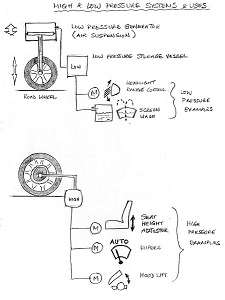 HIGH & LOW PRESSURE SYSTEMS & USES
LOW PRESSURE GENERATOR
(AIR SUSPENSION)
LOW PRESSURE STORAGE VESSEL
LOW
ROAD WHEEL
M
HEADLIGHT
RANGE CONTROL
SCREEN
WASH
LOW
PRESSURE
EXAMPLES
HIGH
M
SEAT
HEIGHT
ADJUSTER
M
AUTO
WIPERS
M
HOOD LIFT
HIGH
PRESSURE
EXAMPLES